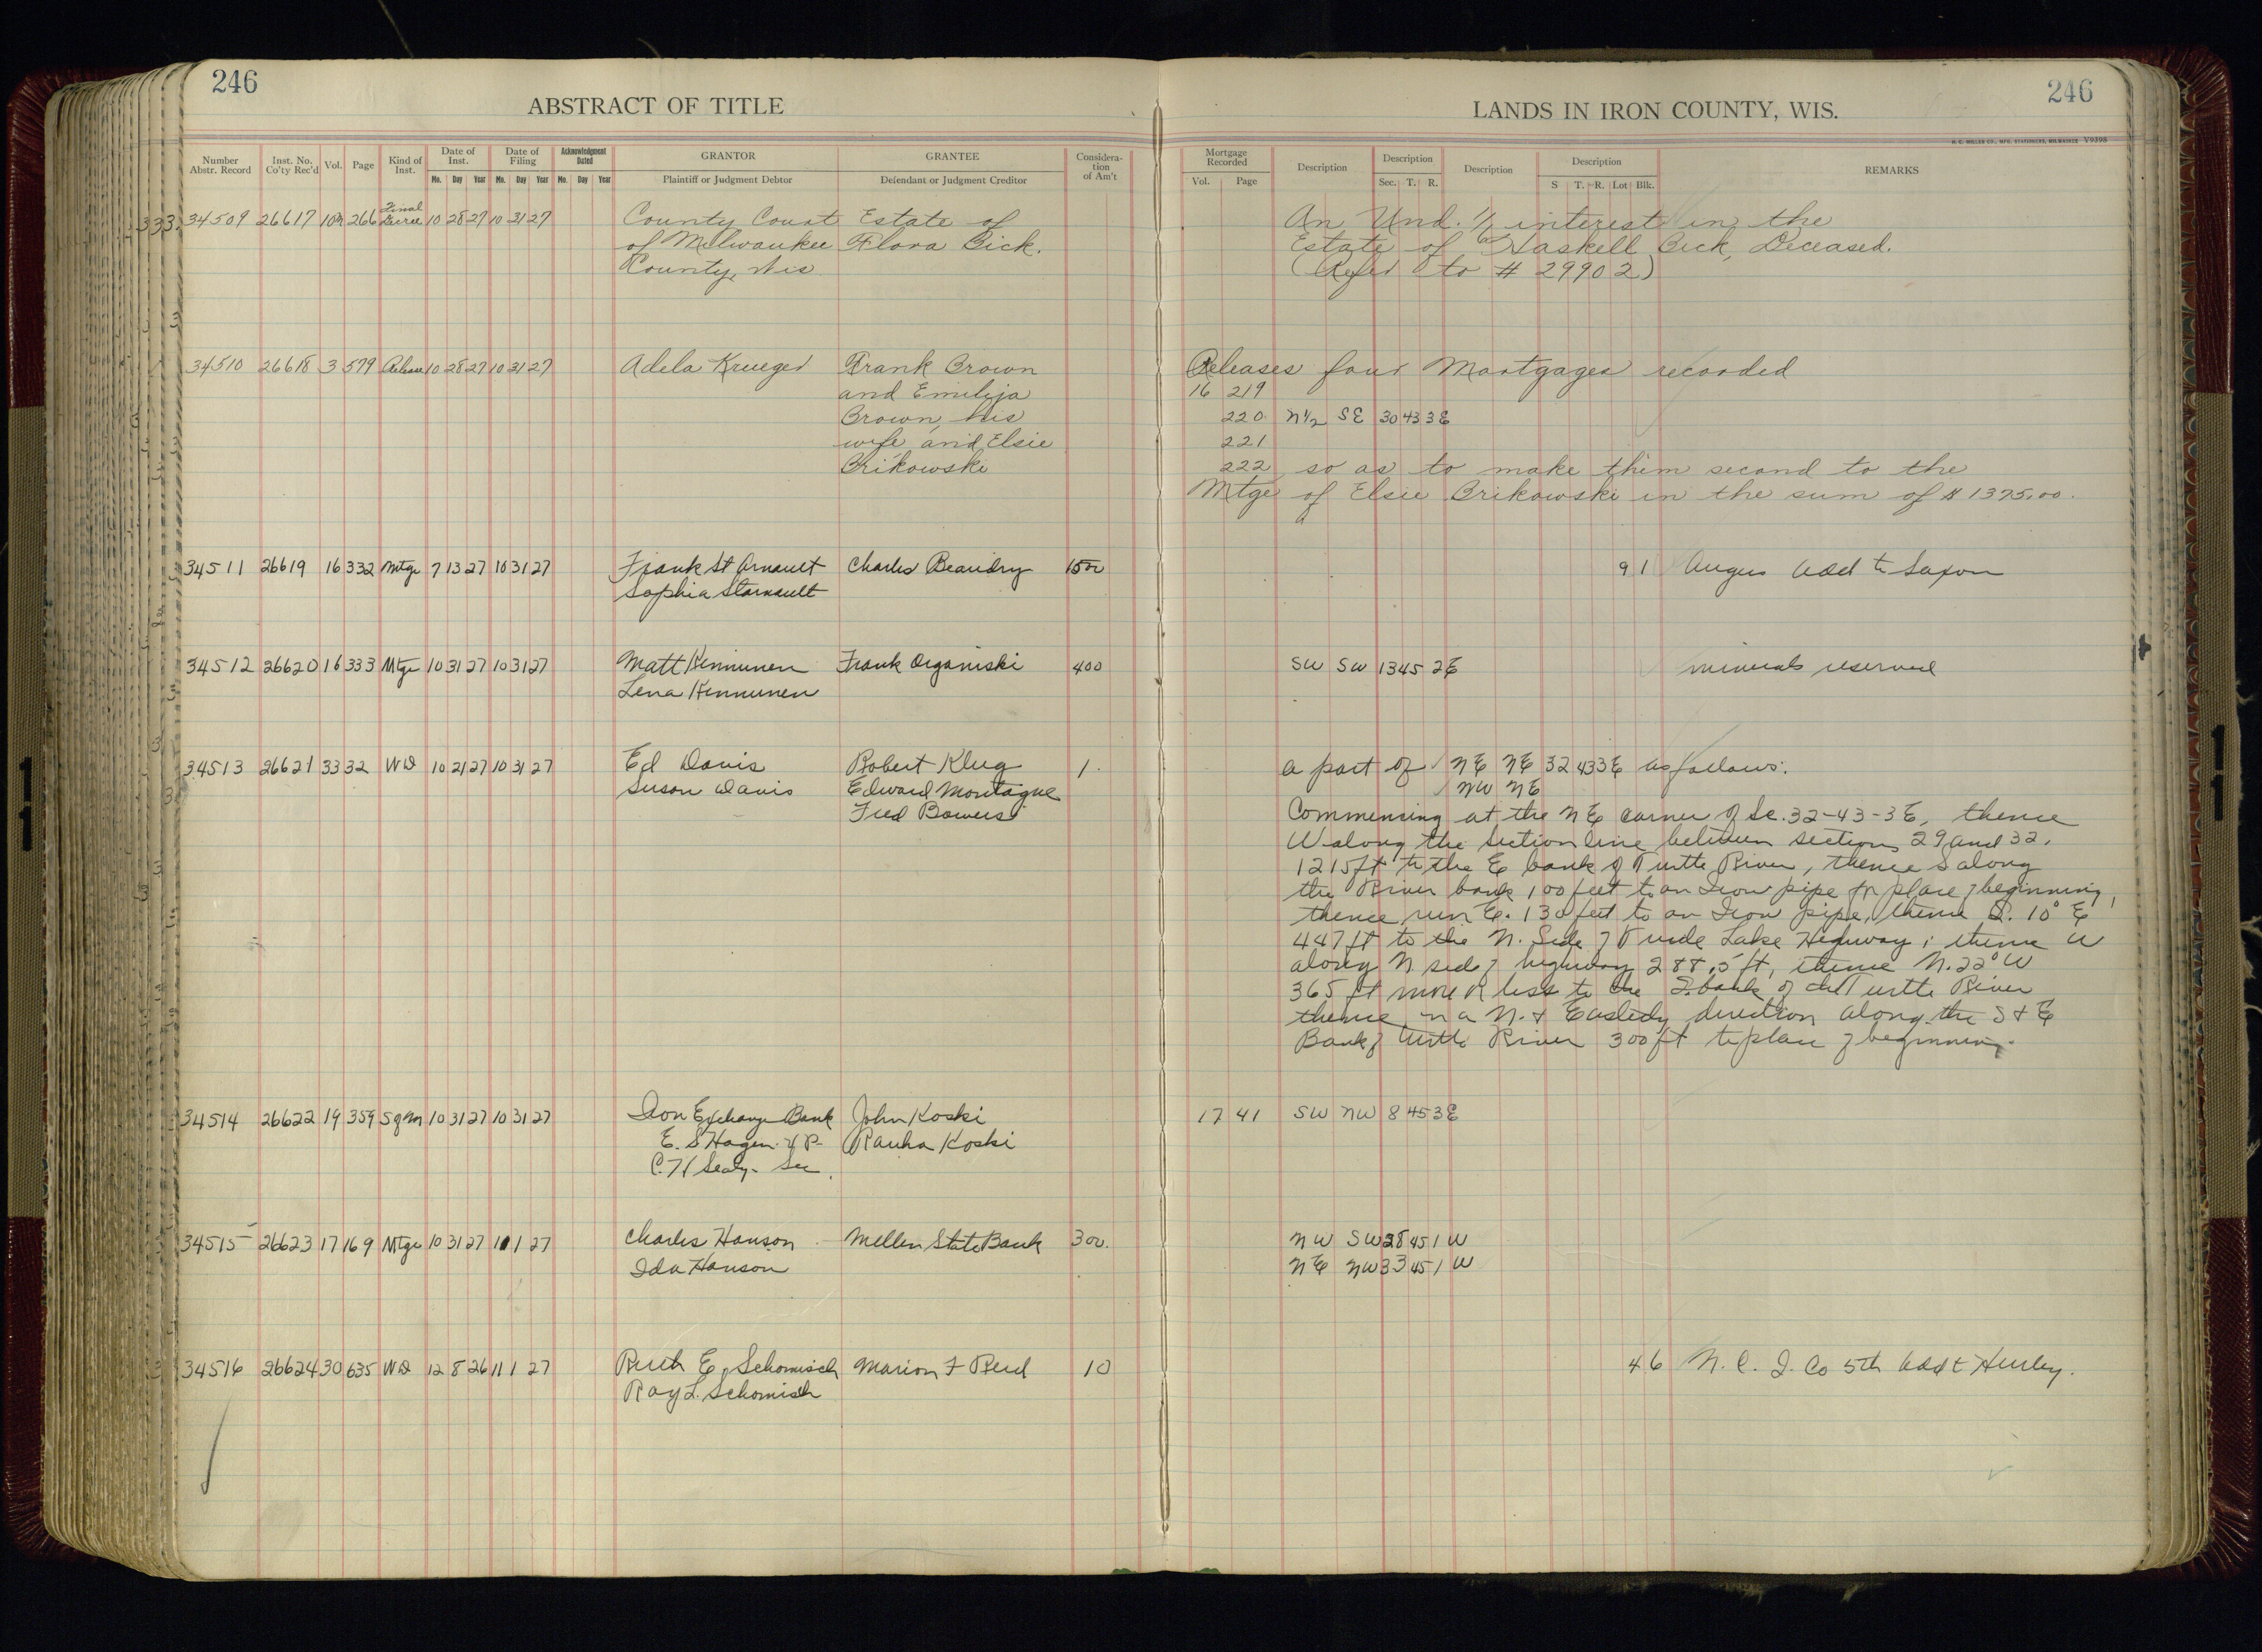 246
ABSTRACT OF TITLE
Number Abstr. Record
Inst. No. Co'ty Rec'd
Vol.
Page
Kind of Inst.
Date of Inst.
Mo. Day Year
Date of Filing
Mo. Day Year
Acknowledgment Dated
Mo. Day Year
GRANTOR
Plaintiff or Judgment Debtor
GRANTEE
Defendant or Judgment Creditor
Considera-tion of Am't
34509 26617 266 Final Decree 10 28 27 10 31 27 County Court Estate of
of Milwaukee Flora Bick.
County, Wis
34510 26618 3 579 Release 10 28 27 10 31 27 Adela Krueger Frank Brown
and Emilija
Brown, his
wife, and Elsie
Brikowski
34511 26619 16 332 Mtge 7 13 27 10 31 27 Frank St Arnault Charles Beaudry 1500
Sophia Starnault
34512 26620 16 333 Mtge 10 31 27 10 31 27 Matt Kinnunen Frank Organiski 400
Lena Kinnunen
34513 26621 33 32 WD 10 21 27 10 31 27 Ed Davis Robert Klug 1.
Suson Davis Edward Montague
Fred Bowers
34514 26622 19 359 10 31 27 10 31 27 Iron Exchange Bank John Koski
E. S Hagen V P- Rauha Koski
C. H Sealy- Sec.
34515 26623 17 169 Mtge 10 31 27 11 1 27 Charles Hanson Mellen State Bank 300.
Ida Hanson
34516 26624 30 635 WD 12 8 26 11 1 27 Ruth E. Schomisch Marion F Reid 10
Ray L. Schomisch
246
LANDS IN IRON COUNTY, WIS.
H. C. MILLER CO., MFG. STATIONERS, MILWAUKEE V9398
Mortgage Recorded
Vol. Page
Description
Description
Sec. T. R.
Description
Description
S T. R. Lot Blk.
REMARKS
An Und. interest in the
Estate of Haskell Bick, Deceased.
(Refer to # 29902)
Releases four Mortgages recorded
16 219
220 N½ SE 30 43 3E
221
222 so as to make them second to the
Mtge of Elsie Brikowski in the sum of $1375.00.
9 1 Angus Add to Saxon
SW SW 13 45 2E minerals reserved
a part of NE NE 32 43 3E as follows:
NW NE
Commencing at the NE corner of Sc. 32-43-3E, thence
W along the section line between sections 29 and 32,
1215 ft to the E bank of Turtle River, thence S along
the River bank 100 feet to an Iron pipe for place of beginning,
thence run E. 130 feet to an Iron pipe, thence S. 10° E
447 ft to the N. Side of Trude Lake Highway; thence W
along N side of highway 288.5 ft, thence N. 22° W
365 ft more or less to the S. bank of the Turtle River
thence in a N. & Easterly direction along the S & E
Bank of Turtle River 300 ft to place of beginning.
17 41 SW NW 8 45 3E
NW SW 28 45 1 W
NE NW 33 45 1 W
4 6 N. C. I. Co 5th Add t Hurley.